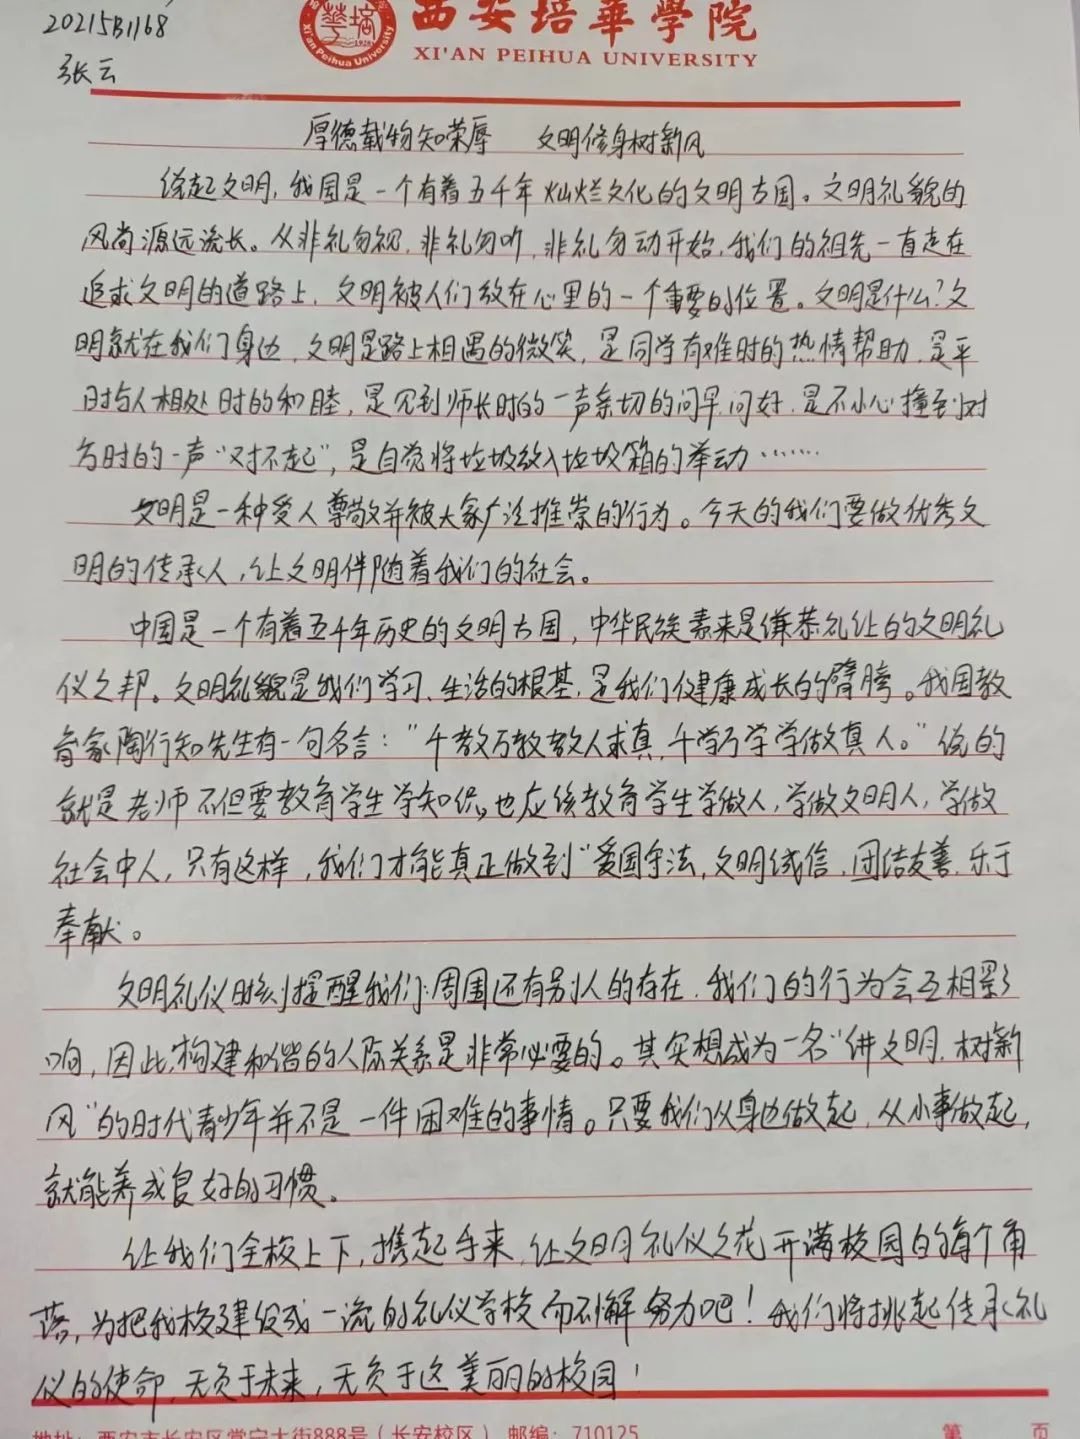 20215B1168
西安培華學院
XI'AN PEIHUA UNIVERSITY
Xi'an Peihua University
张云
厚德载物知荣辱 文明修身树新风
说起文明,我国是一个有着五千年灿烂文化的文明古国。文明礼貌的
风尚源远流长。从非礼勿视,非礼勿听,非礼勿动开始,我们的祖先一直走在
追求文明的道路上,文明被人们放在心里的一个重要的位置。文明是什么?文
明就在我们身边,文明是路上相遇的微笑,是同学有难时的热情帮助,是平
时与人相处时的和睦,是见到师长时的一声亲切的问早问好,是不小心撞到对
方时的一声“对不起”,是自觉将垃圾放入垃圾箱的举动……
文明是一种受人尊敬并被大家广泛推崇的行为。今天的我们要做优秀文
明的传承人,让文明伴随着我们的社会。
中国是一个有着五千年历史的文明古国,中华民族素来是谦恭礼让的文明礼
仪之邦。文明礼貌是我们学习、生活的根基,是我们健康成长的臂膀。我国教
育家陶行知先生有一句名言:“千教万教教人求真,千学万学学做真人。”说的
就是老师不但要教育学生学知识,也应该教育学生学做人,学做文明人,学做
社会中人,只有这样,我们才能真正做到“爱国守法,文明诚信,团结友善,乐于
奉献。
文明礼仪时刻提醒我们:周围还有别人的存在,我们的行为会互相影
响,因此,构建和谐的人际关系是非常必要的。其实想成为一名“讲文明,树新
风”的时代青少年并不是一件困难的事情。只要我们从身边做起,从小事做起,
就能养成良好的习惯。
让我们全校上下,携起手来,让文明礼仪之花开满校园的每个角
落,为把我校建设成一流的礼仪学校而不懈努力吧!我们将挑起传承礼
仪的使命,无负于未来,无负于这美丽的校园!
地址:西安市长安区常宁大街888号(长安校区) 邮编:710125 第 页